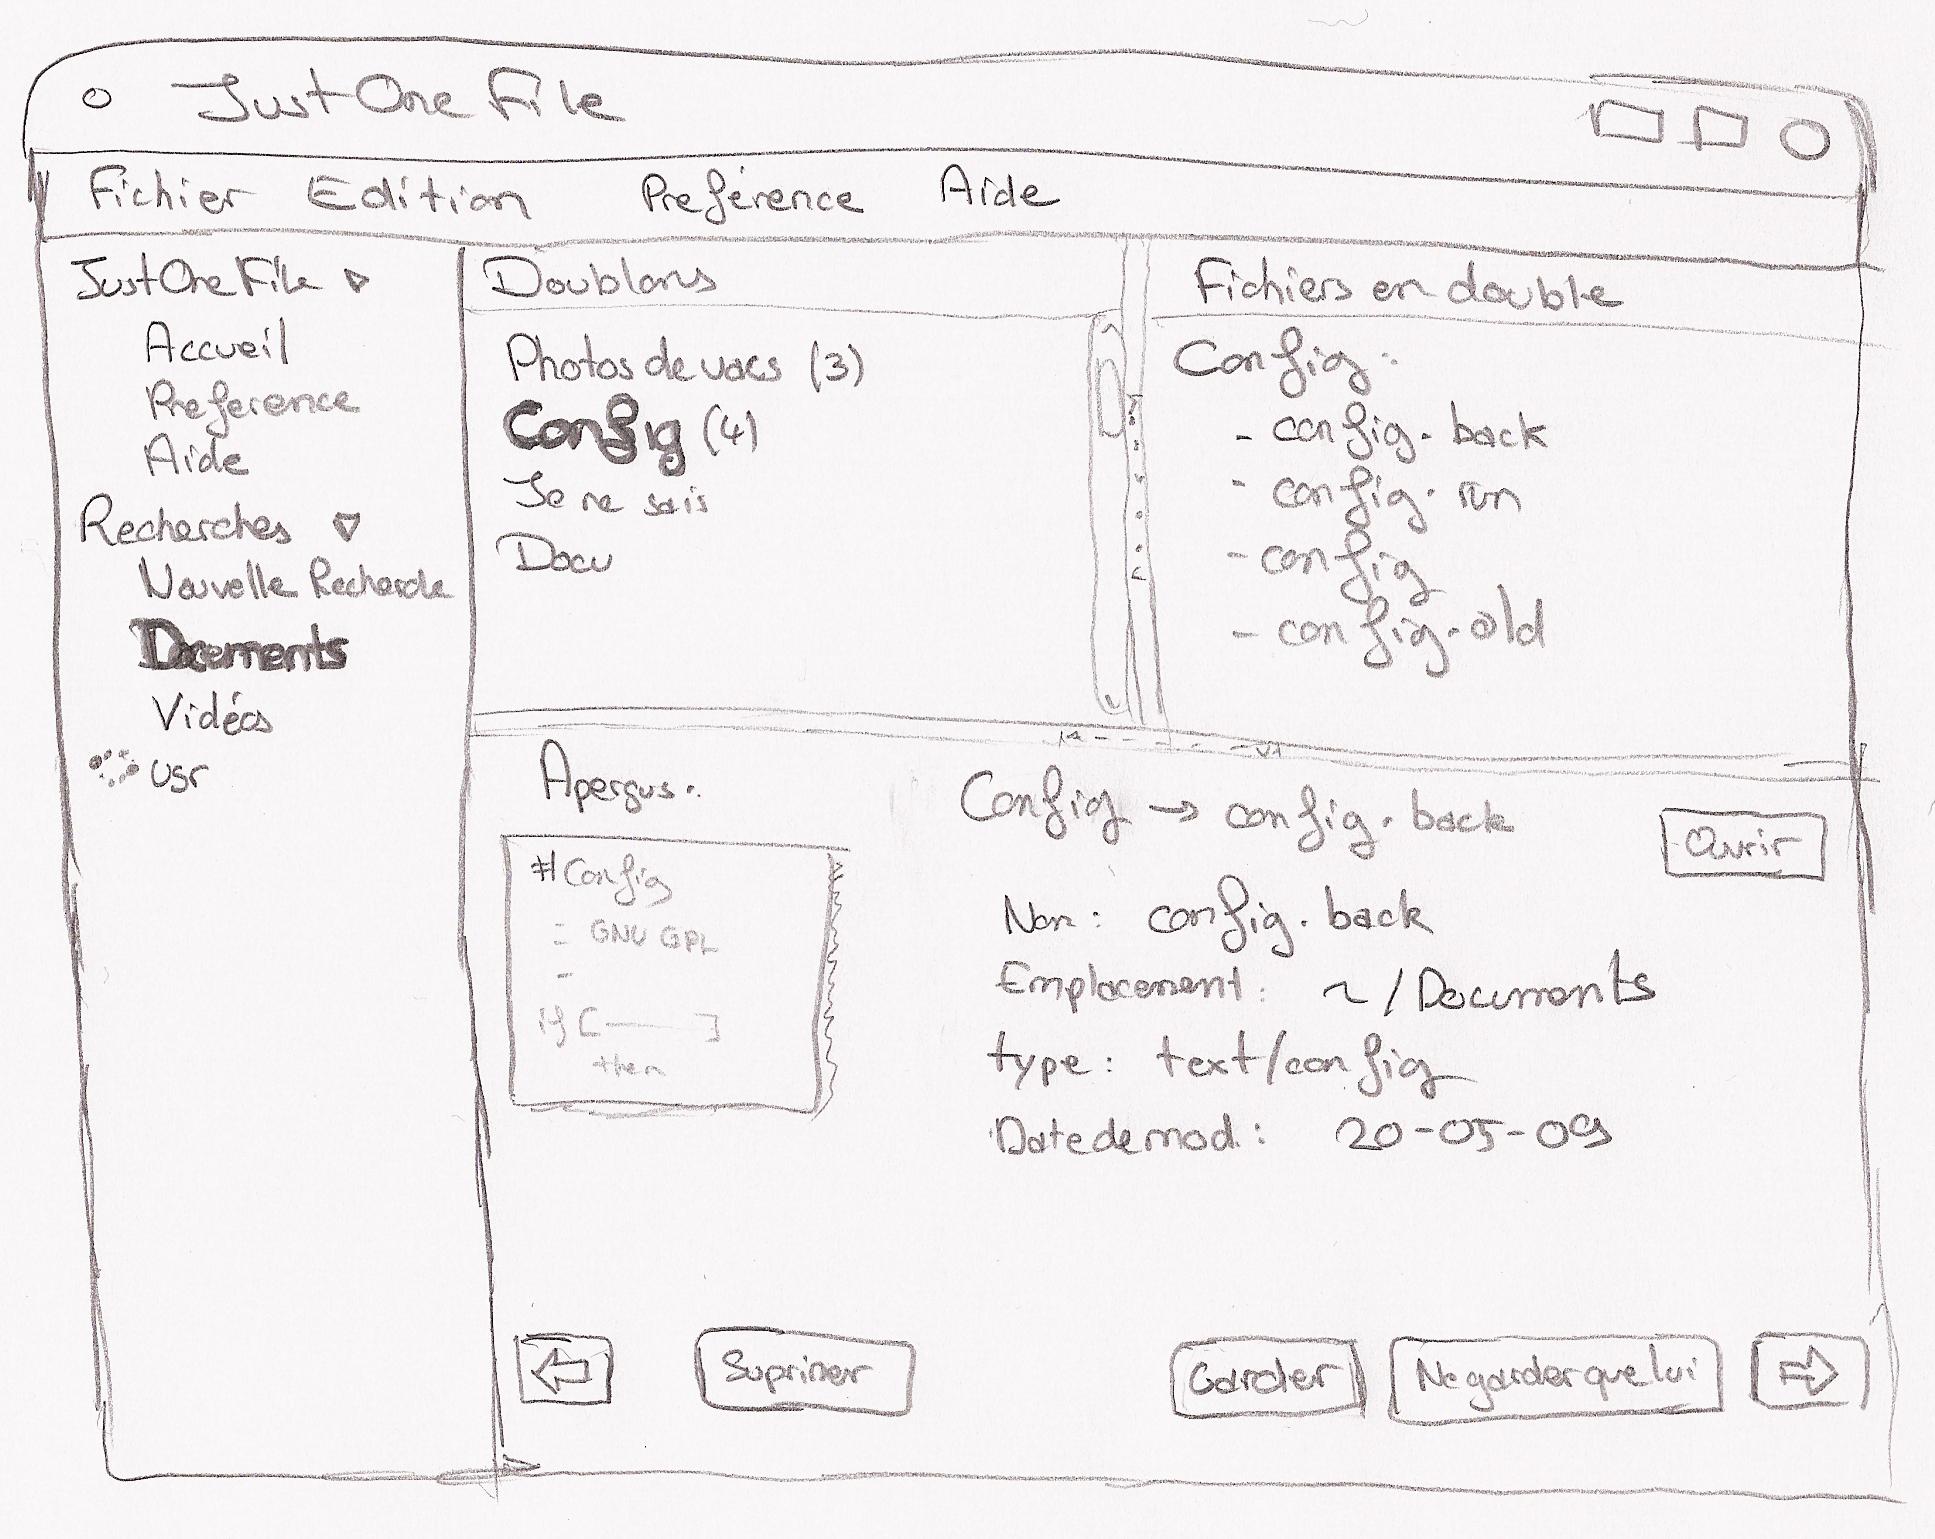 JustOneFile
Fichier Edition Preférence Aide
JustOneFile
Accueil
Preference
Aide
Recherches
Nouvelle Recherche
Documents
Vidéos
usr
Doublons
Photos de vacs (3)
Config (4)
Je ne sais
Docu
Fichiers en double
Config:
- config.back
- config.run
- config
- config.old
Aperçus:
#Config
= GNU GPL
-
if [ ]
then
Config → config.back
Ouvrir
Nom: config.back
Emplacement: ~/Documents
type: text/config
Date de mod.: 20-05-09
Suprimer
Garder
Ne garder que lui